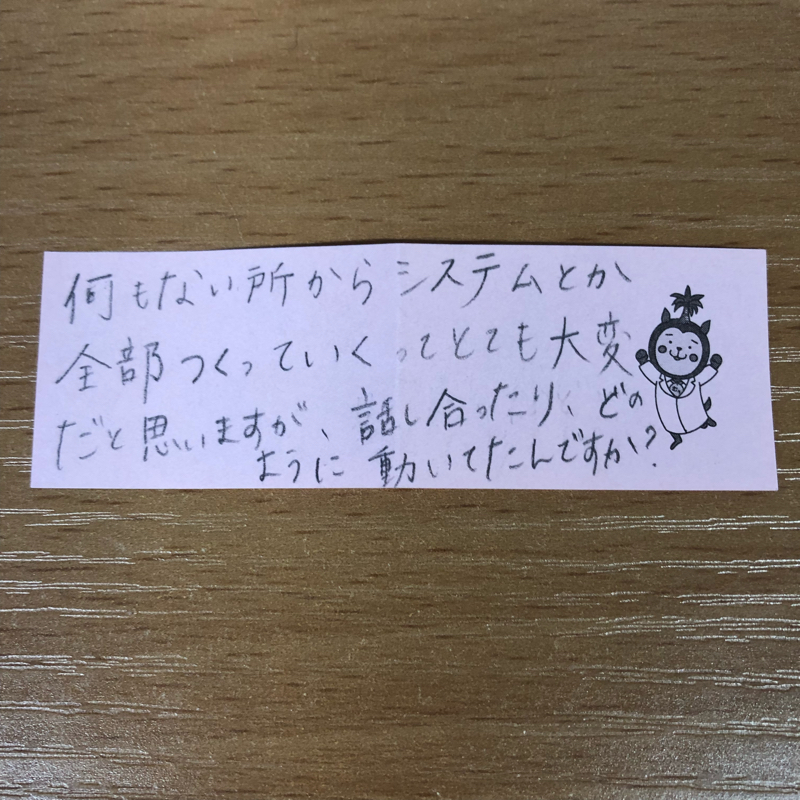 何もない所からシステムとか
全部つくっていくってとても大変
だと思いますが、話し合ったり、どの
ように動いてたんですか?